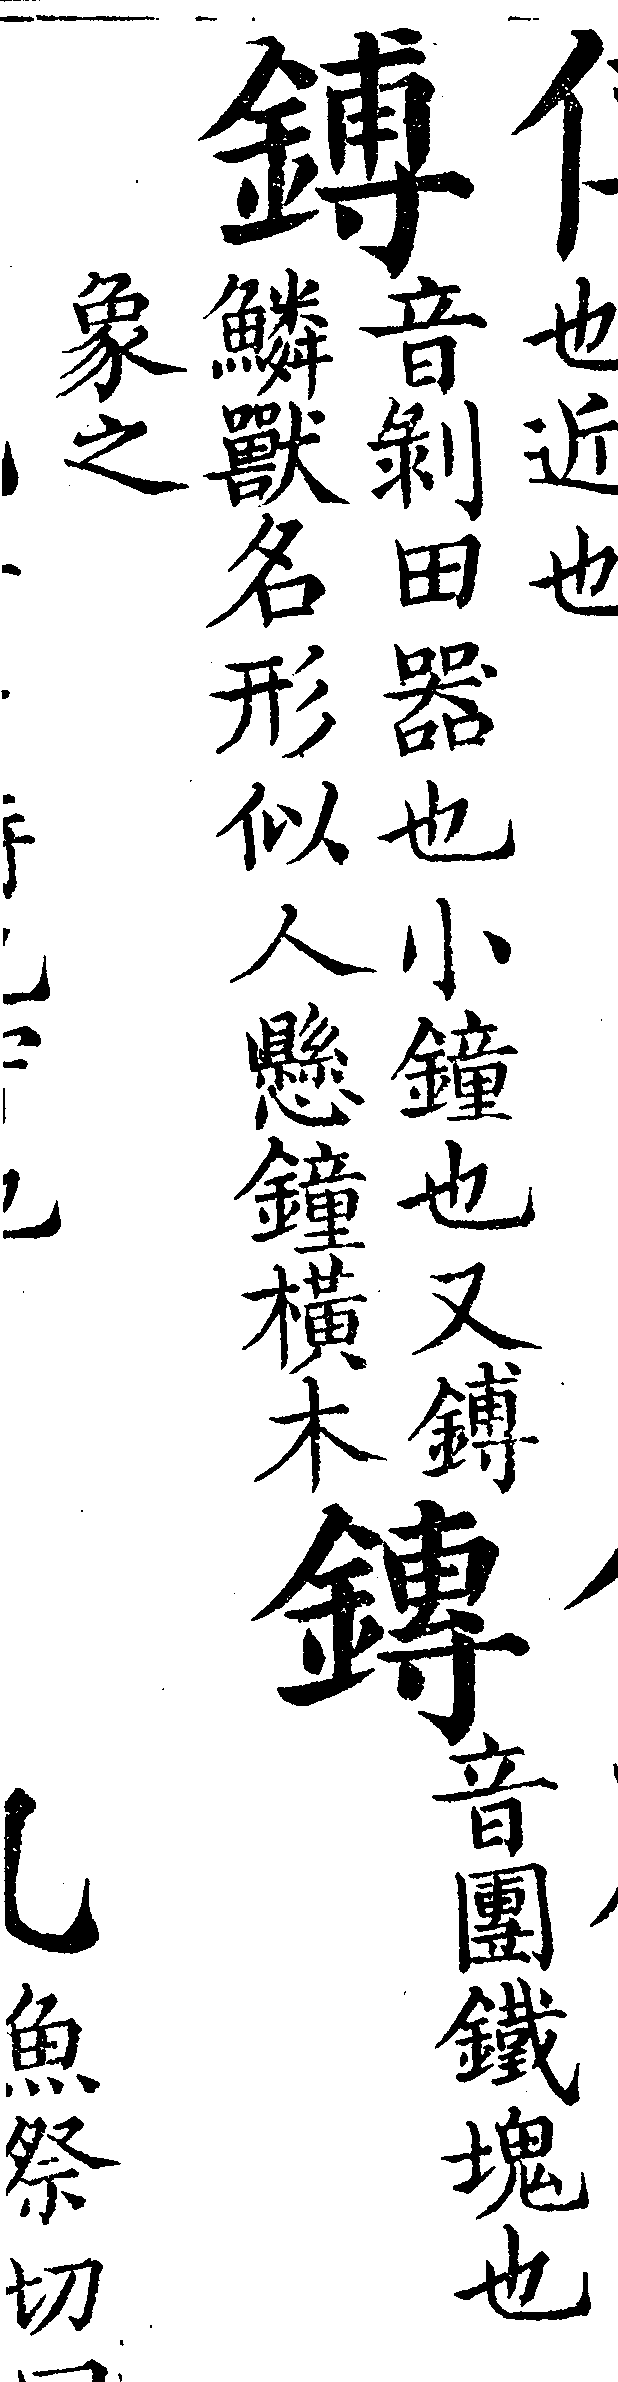 也近也
鎛
音剝田器也小鐘也又鎛
鱗獸名形似人懸鐘橫木
象之
鏄
音團鐵塊也
魚祭切